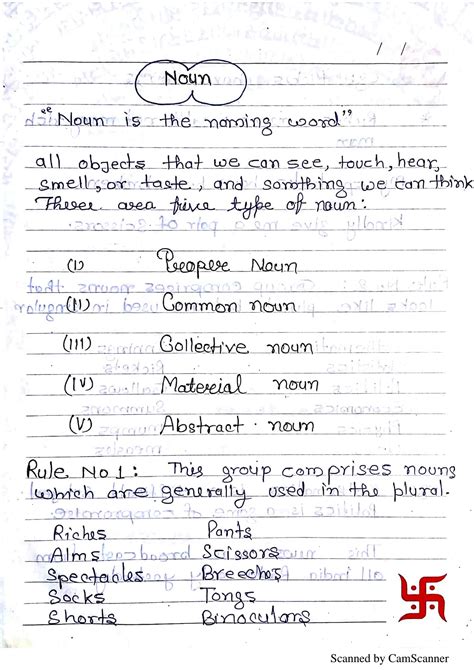 Noun
"Noun is the naming word"
all objects that we can see, touch, hear,
smell, or taste, and somthing we can think
There area five type of noun:
(I) Proper Noun
(II) Common noun
(III) Collective noun
(IV) Material noun
(V) Abstract noun
Rule No 1: This group comprises nouns
which are generally used in the plural.
Riches Pants
Alms Scissors
Spectables Breeches
Socks Tongs
Shorts Binoculars
Scanned by CamScanner